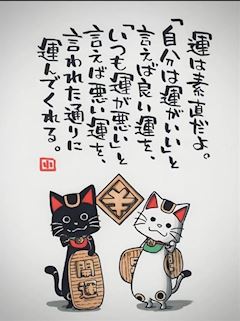 運は素直だよ。
「自分は運がいい」と
言えば良い運を、
「いつも運が悪い」と
言えば悪い運を、
言われた通りに
運んでくれる。
¥
開運